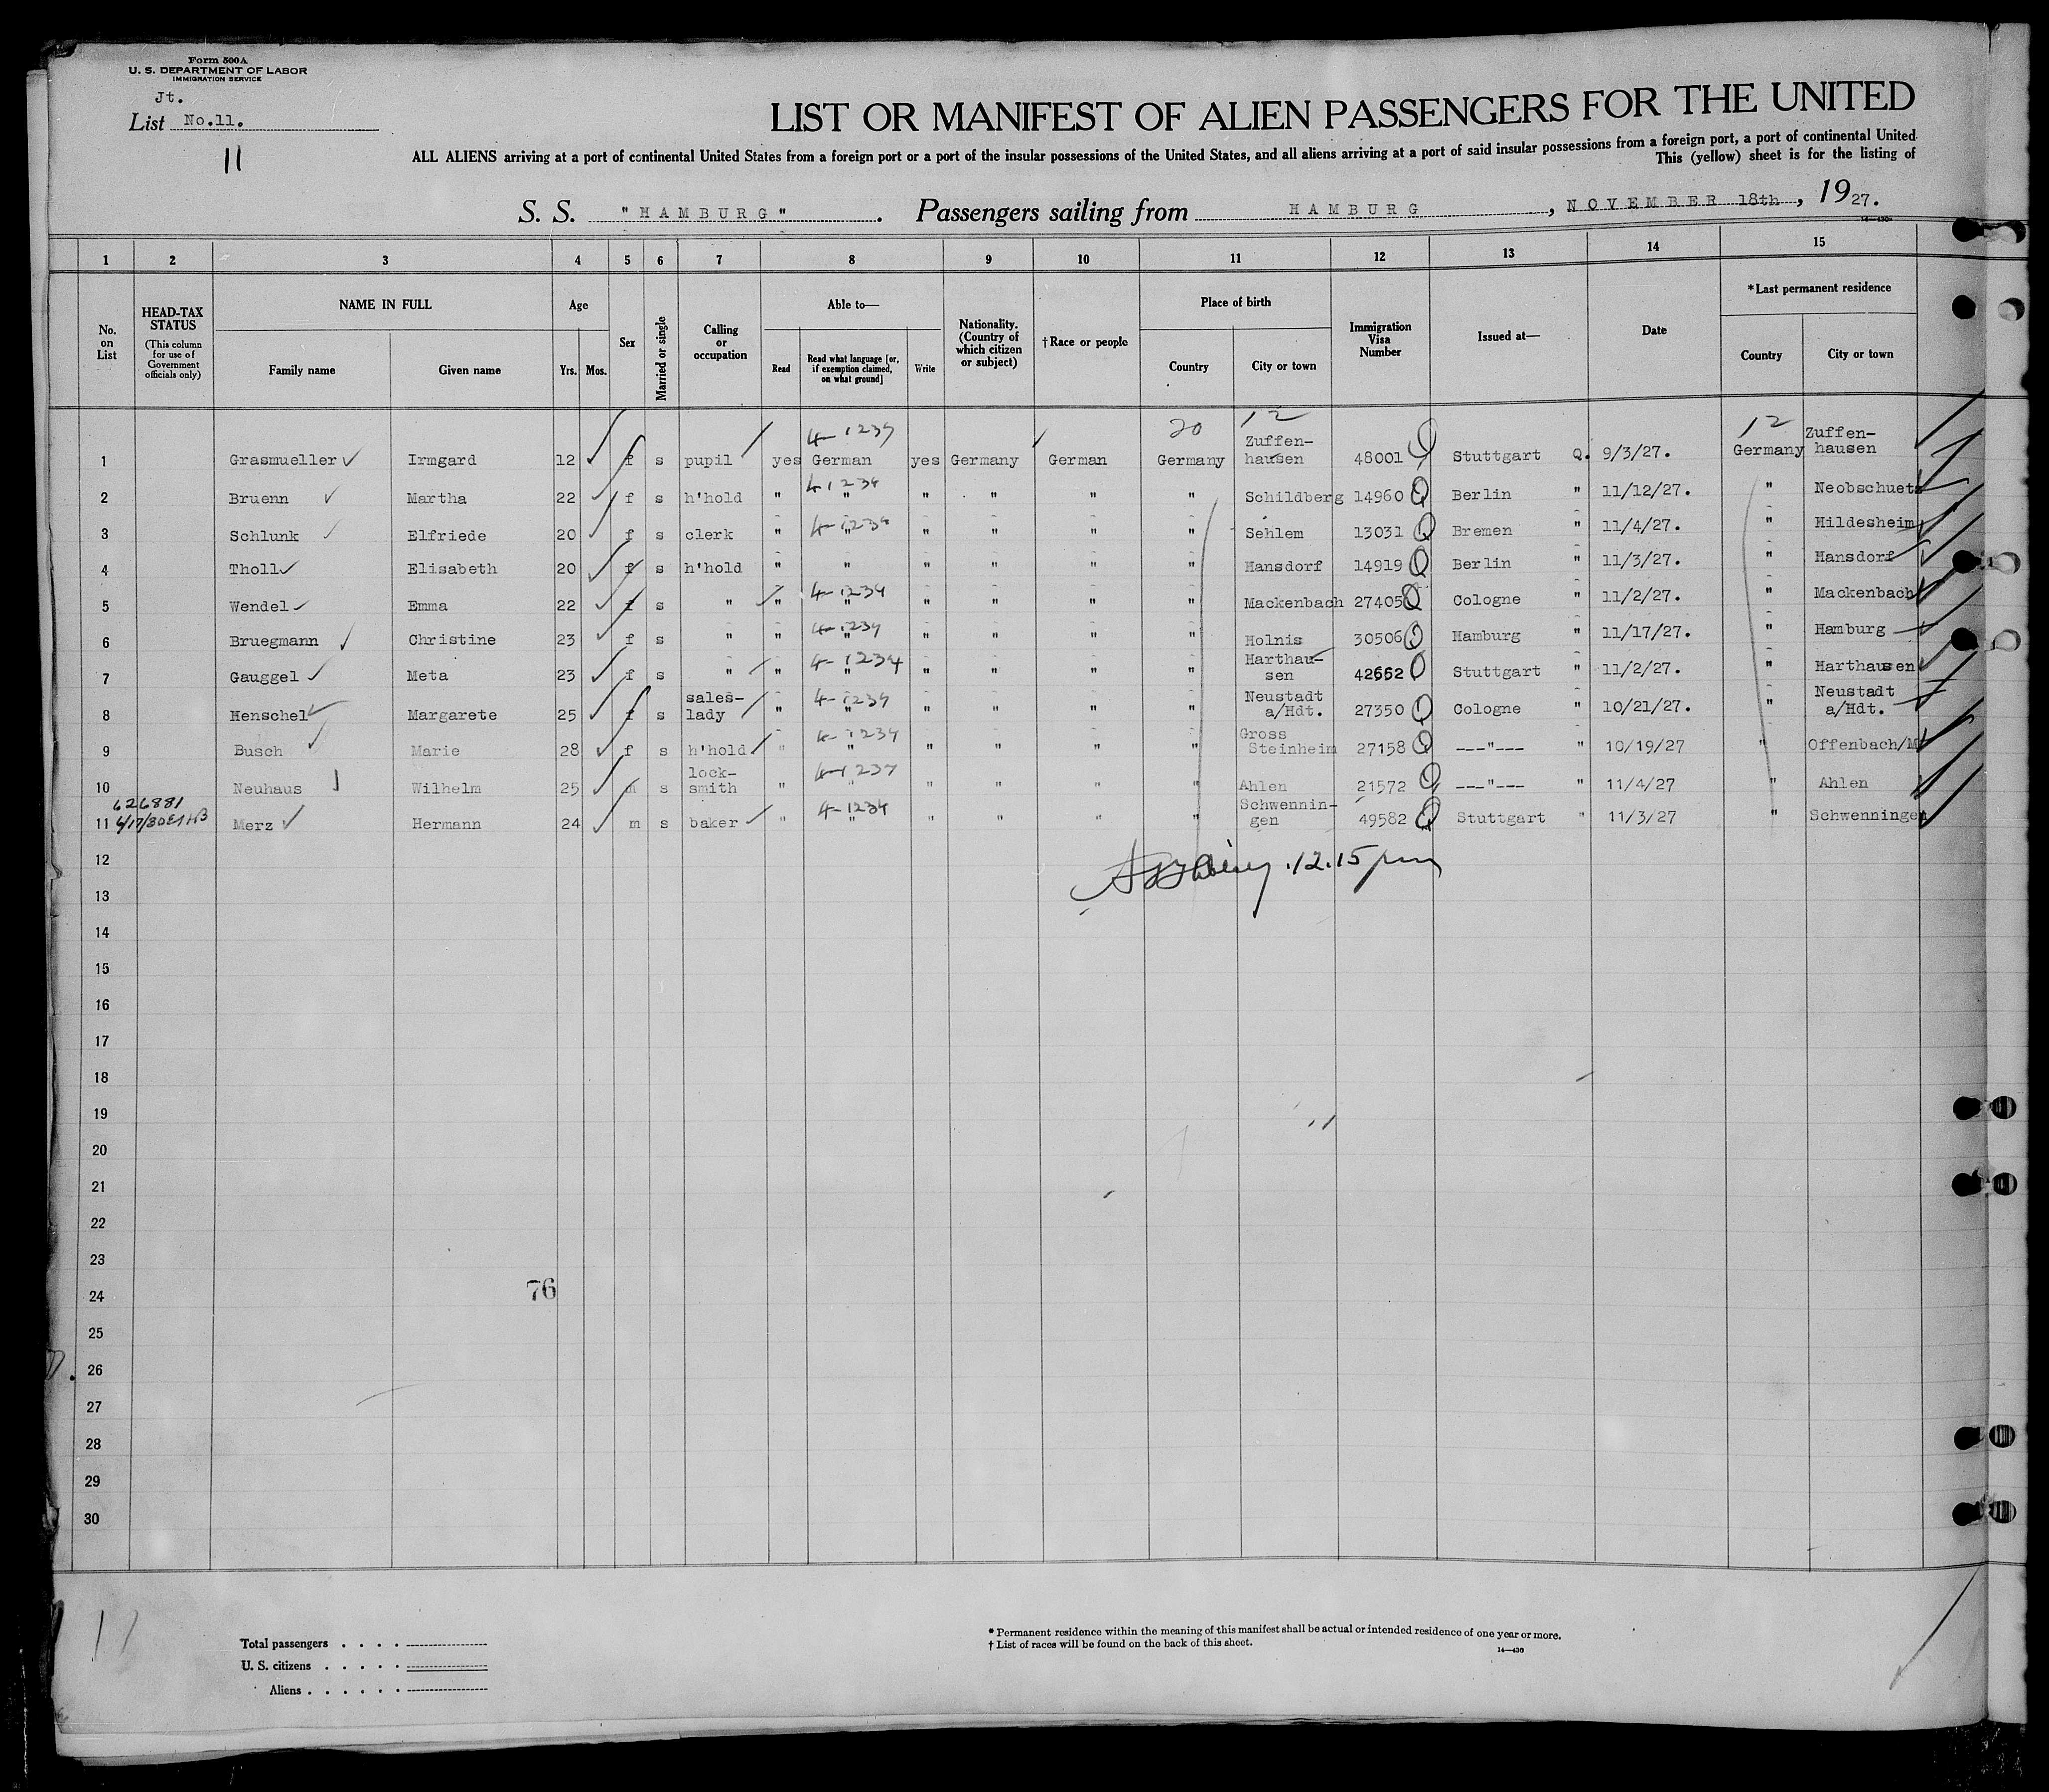 Form 500A
U. S. DEPARTMENT OF LABOR
IMMIGRATION SERVICE
Jt.
List No.11.
11
LIST OR MANIFEST OF ALIEN PASSENGERS FOR THE UNITED
ALL ALIENS arriving at a port of continental United States from a foreign port or a port of the insular possessions of the United States, and all aliens arriving at a port of said insular possessions from a foreign port, a port of continental United
This (yellow) sheet is for the listing of
S. S. "HAMBURG". Passengers sailing from HAMBURG, NOVEMBER 18th, 1927.
14—430
1 2 3 4 5 6 7 8 9 10 11 12 13 14 15
No. on List
HEAD-TAX STATUS (This column for use of Government officials only)
NAME IN FULL Family name Given name
Age Yrs. Mos.
Sex
Married or single
Calling or occupation
Able to— Read Read what language [or, if exemption claimed, on what ground] Write
Nationality. (Country of which citizen or subject)
†Race or people
Place of birth Country City or town
Immigration Visa Number
Issued at—
Date
*Last permanent residence Country City or town
4-1234 20 12 12
1 Grasmueller Irmgard 12 f s pupil yes German yes Germany German Germany Zuffen-hausen 48001 Q Stuttgart Q. 9/3/27. Germany Zuffen-hausen
4-1234
2 Bruenn Martha 22 f s h'hold " " " " " " Schildberg 14960 Q Berlin " 11/12/27. " Neobschuetz
4-1234
3 Schlunk Elfriede 20 f s clerk " " " " " " Sehlem 13031 Q Bremen " 11/4/27. " Hildesheim
4 Tholl Elisabeth 20 f s h'hold " " " " " " Hansdorf 14919 Q Berlin " 11/3/27. " Hansdorf
4-1234
5 Wendel Emma 22 f s " " " " " " " Mackenbach 27405 Q Cologne " 11/2/27. " Mackenbach
4-1234
6 Bruegmann Christine 23 f s " " " " " " " Holnis 30506 Q Hamburg " 11/17/27. " Hamburg
4-1234
7 Gauggel Meta 23 f s " " " " " " " Harthau-sen 42652 Q Stuttgart " 11/2/27. " Harthausen
4-1234
8 Henschel Margarete 25 f s sales-lady " " " " " " Neustadt a/Hdt. 27350 Q Cologne " 10/21/27. " Neustadt a/Hdt.
4-1234
9 Busch Marie 28 f s h'hold " " " " " " Gross Steinheim 27158 Q ---"--- " 10/19/27 " Offenbach/M
4-1234
10 Neuhaus Wilhelm 25 m s lock-smith " " " " " " Ahlen 21572 Q ---"--- " 11/4/27 " Ahlen
626881
4-1234
11 Merz Hermann 24 m s baker " " " " " " Schwennin-gen 49582 Q Stuttgart " 11/3/27 " Schwenningen
12.15 pm
12
13
14
15
16
17
18
19
20
21
22
23
24
76
25
26
27
28
29
30
11
Total passengers
U. S. citizens
Aliens
* Permanent residence within the meaning of this manifest shall be actual or intended residence of one year or more.
† List of races will be found on the back of this sheet.
14—430